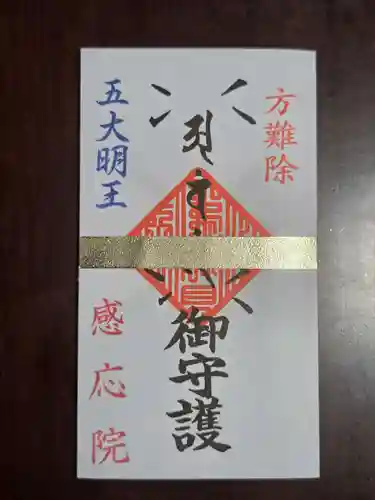 方難除
御守護
五大明王
感応院